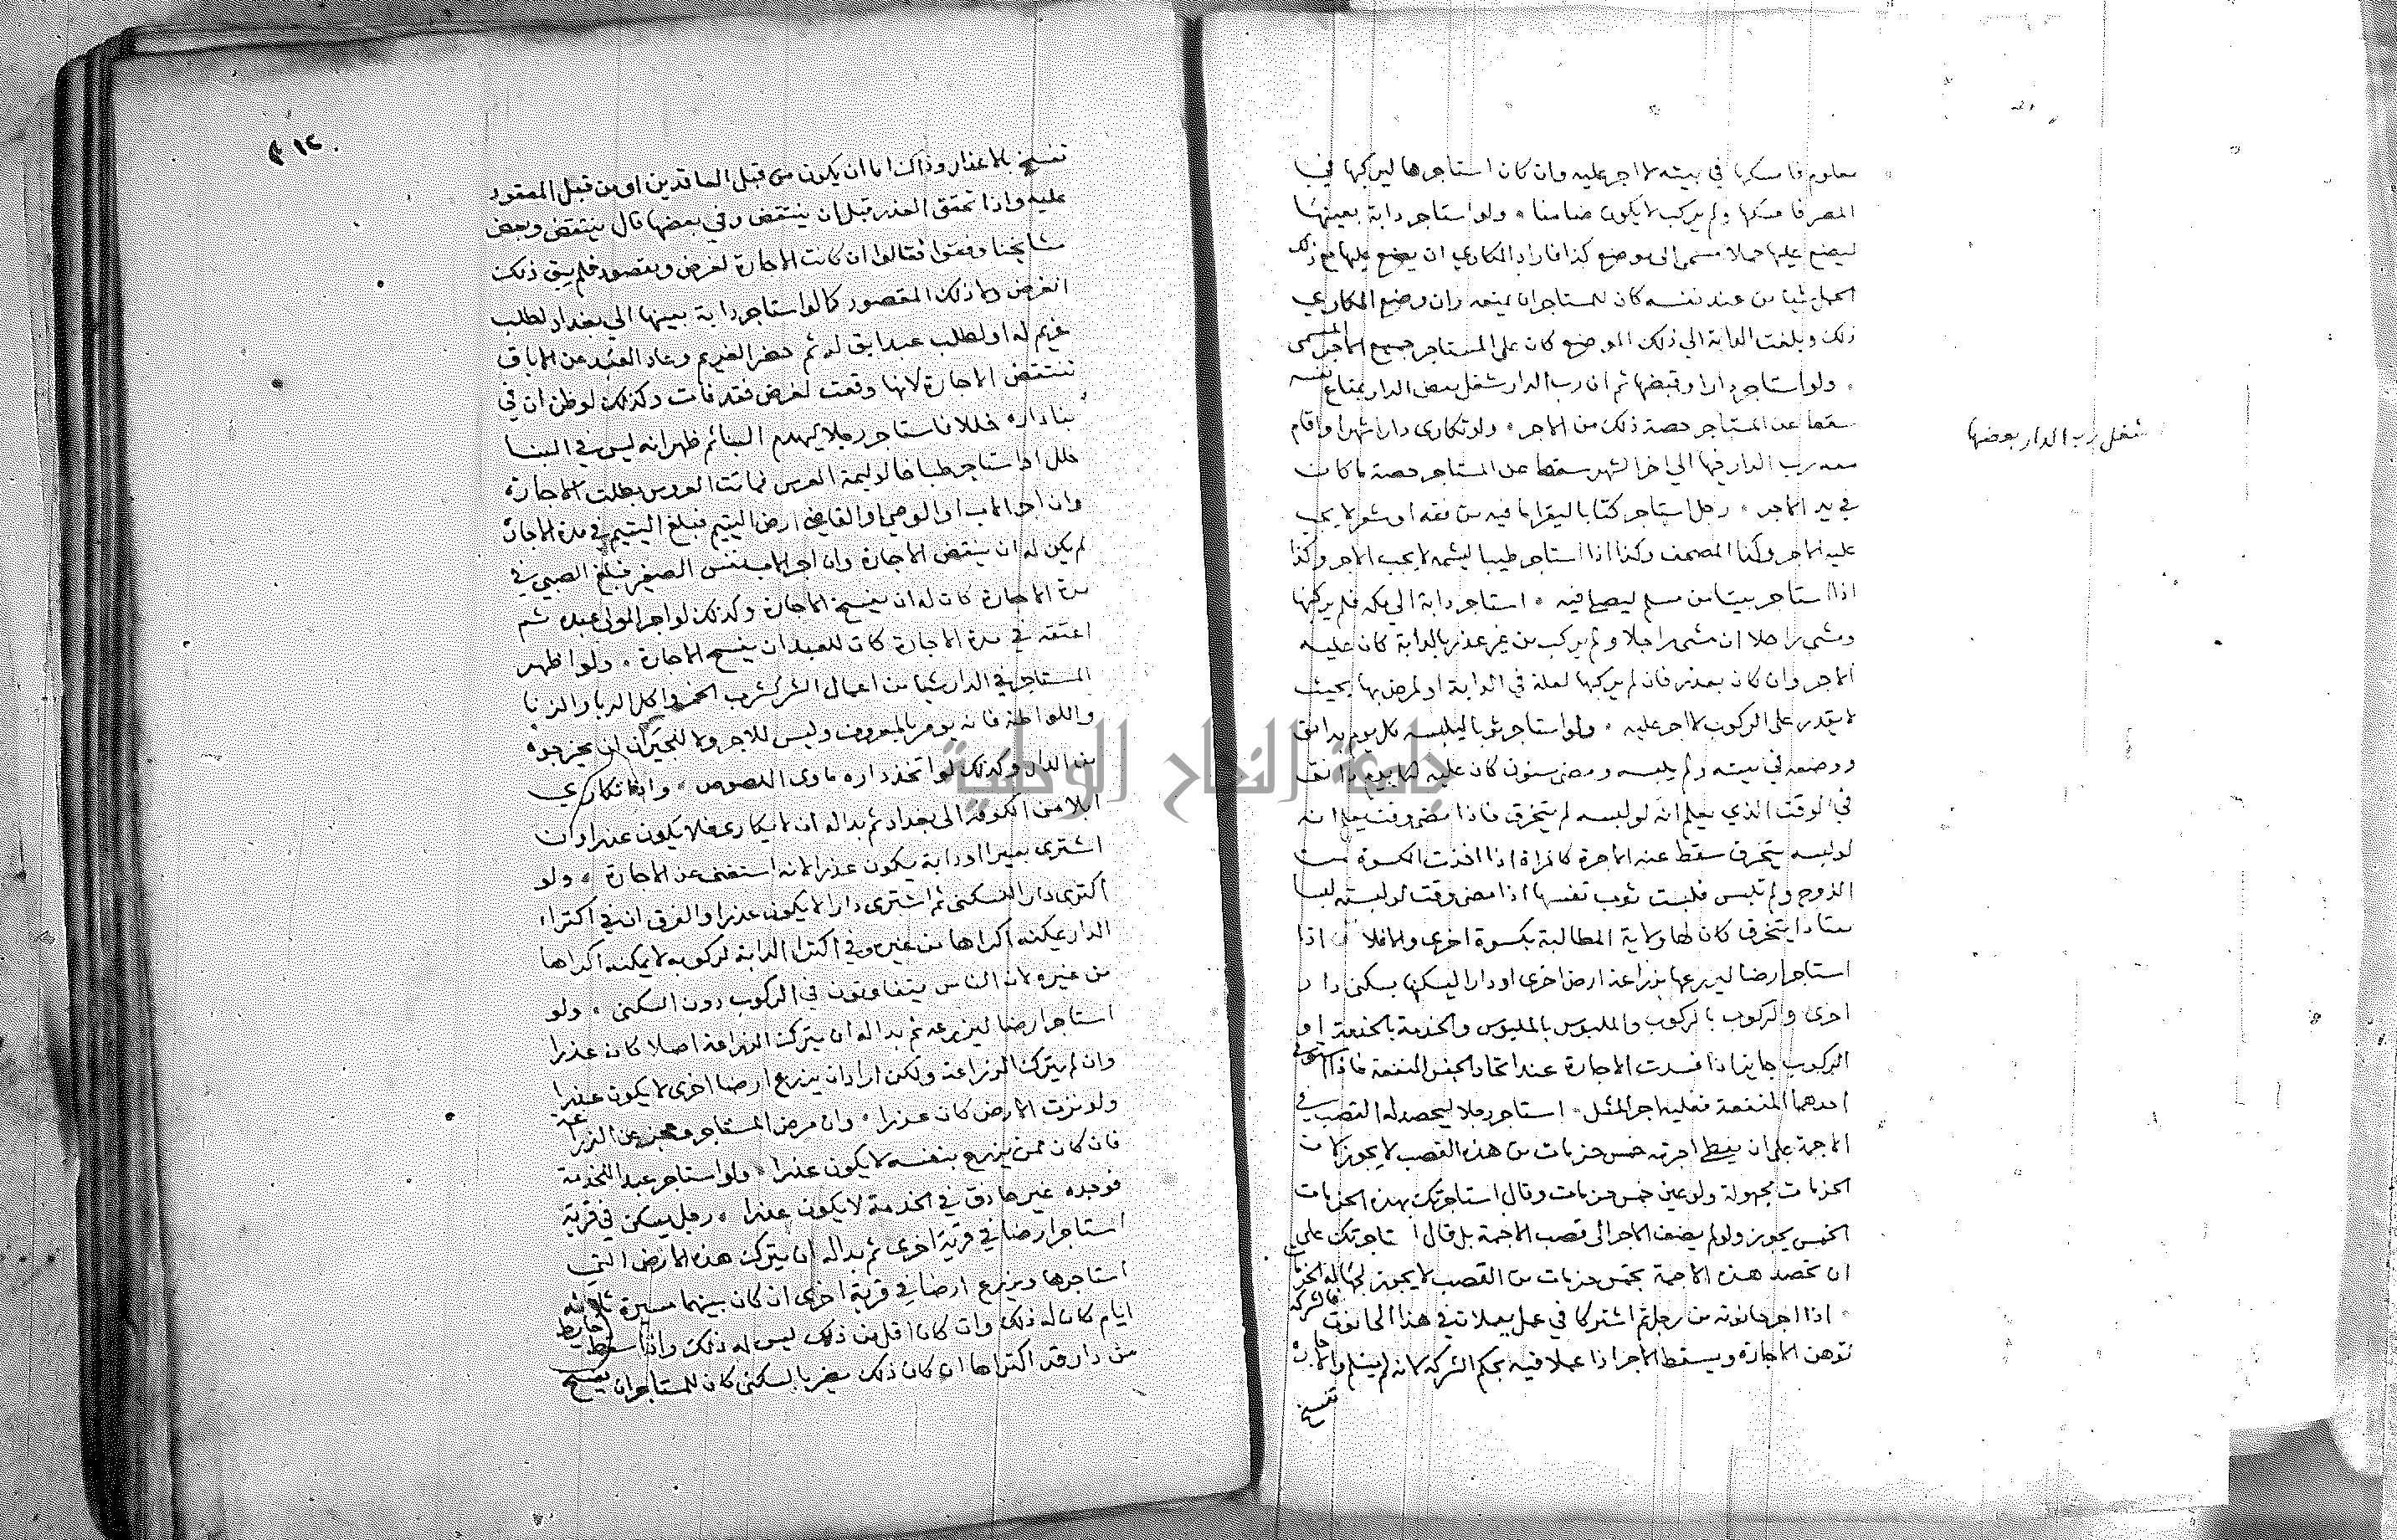 معلوم فامسكها في بيته لا اجر عليه وان كان استاجرها ليركبها في
المصر فامسكها ولم يركب لا يكون ضامنا ولو استاجر دابة بعينها
ليضع عليها حملا مسمى الى موضع كذا فاراد المكاري ان يضع عليها مع ذلك
الحمل شيا من عند نفسه كان للمستاجر ان يمنعه وان وضع المكاري
ذلك وبلغت الدابة الى ذلك الموضع كان على المستاجر جميع الاجر المسمى
ولو استاجر دارا وقبضها ثم ان رب الدار شغل بعض الدار بمتاع نفسه
سقط عن المستاجر حصة ذلك من الاجر ولو تكارى دارا شهرا واقام
معه رب الدار فيها الى اخر الشهر سقط عن المستاجر حصة ما كان
شغل رب الدار بعضها
في يد الاجر رجل استاجر كتابا ليقرا ما فيه من فقه او شعر لا يجب
عليه الاجر وكذا المصحف وكذا اذا استاجر طيبا ليشمه لا يجب الاجر وكذا
اذا استاجر بيتا من مسلم ليصلي فيه استاجر دابة الى مكه فلم يركبها
ومشى راجلا ان مشى راجلا ولم يركب من غير عذر بالدابة كان عليه
الاجر وان كان بعذر فان لم يركبها لعلة في الدابة او لمرض بها بحيث
لا يقدر على الركوب لا اجر عليه ولو استاجر ثوبا ليلبسه كل يوم بدانق
ووضعه في بيته ولم يلبسه ومضى سنون كان عليه لكل يوم دانق
في الوقت الذي يعلم انه لو لبسه لم يتخرق فاذا مضى وقت يعلم انه
لو لبسه يتخرق سقط عنه الاجرة كالمراة اذا اخذت الكسوة من
الزوج ولم تلبس فلبست ثوب نفسها اذا مضى وقت لو لبسته لبسا
معتادا يتخرق كان لها ولاية المطالبة بكسوة اخرى والا فلا اذا
استاجر ارضا ليزرعها بزراعة ارض اخرى او دارا ليسكنها بسكنى دار
اخرى والركوب بالركوب والملبوس بالملبوس والخدمة بالخدمة او
الركوب جايز اذا فسدت الاجارة عند اتحاد الجنس المنفعة فاذا استوفى
احدهما المنفعة فعليه اجر المثل استاجر رجلا ليحصد له القصب في
الاجمة على ان يعطي اجرته خمس حزمات من هذه القصب لا يجوز لان
الحزمات مجهولة ولو عين خمس حزمات وقال استاجرتك بهذه الحزمات
الخمس يجوز ولو لم يضف الاجر الى قصب الاجمة بل قال استاجرتك على
ان تحصد هذه الاجمة بخمس حزمات من القصب لا يجوز لجهالة الحزمات
اذا اجر حانوته من رجل ثم اشتركا في عمل يعملان في هذا الحانوت فالشركة
توهن الاجارة ويسقط الاجر اذا عملا فيه بحكم الشركة لانه لم يسلم والاجارة
تفسخ
١٤
تفسخ بالاعذار وذلك اما ان يكون من قبل العاقدين او من قبل المعقود
عليه واذا تحقق العذر قيل ان ينتقض وفي بعضها قال ينتقض وبعض
مشايخنا وفقوا فقالوا ان كانت الاجارة لغرض ومقصود فلم يبق ذلك
الغرض ولا ذلك المقصود كما لو استاجر دابة بعينها الى بغداد لطلب
غريم له او لطلب عبد ابق له ثم حضر الغريم وعاد العبد من الاباق
تنتقض الاجارة لانها وقعت لغرض فقد فات وكذلك لو ظن ان في
بنا داره خللا فاستاجر رجلا ليهدم البنا ثم ظهر انه ليس في البنا
خلل او استاجر طباخا لوليمة العرس فماتت العروس بطلت الاجارة
وان اجر الاب او الوصي او القاضي ارض اليتيم فبلغ اليتيم في مدة الاجارة
لم يكن له ان ينقض الاجارة وان اجر الاب نفس الصغير فبلغ الصبي في
مدة الاجارة كان له ان يفسخ الاجارة وكذلك لو اجر المولى عبده ثم
اعتقه في مدة الاجارة كان للعبد ان يفسخ الاجارة ولو اظهر
المستاجر في الدار شيا من اعمال الشر كشرب الخمر واكل الربا والزنا
واللواطة فانه يومر بالمعروف وليس للاجر ولا للجيران ان يخرجوه
من الدار وكذلك لو اتخذ داره ماوى اللصوص وان تكارى
ابلا من الكوفة الى بغداد ثم بدا له ان لا يكارى فلا يكون عذرا وان
اشترى بعيرا او دابة يكون عذرا لانه استغنى عن الاجارة ولو
اكترى دارا للسكنى ثم اشترى دارا لا يكون عذرا والفرق ان في اكتراء
الدار يمكنه اكراها من غيره وفي اكترا الدابة لركوبه لا يمكنه اكراها
من غيره لان الناس يتفاوتون في الركوب دون السكنى ولو
استاجر ارضا ليزرعه ثم بدا له ان يترك الزراعة اصلا كان عذرا
وان لم يترك الزراعة ولكن اراد ان يزرع ارضا اخرى لا يكون عذرا
ولو نزت الارض كان عذرا وان مرض المستاجر وعجز عن الزراعة
فان كان ممن يزرع بنفسه لا يكون عذرا ولو استاجر عبدا للخدمة
فوجده غير حاذق في الخدمة لا يكون عذرا رجل يسكن في قرية
استاجر ارضا في قرية اخرى ثم بدا له ان يترك هذه الارض التي
استاجرها ويزرع ارضا في قرية اخرى ان كان بينهما مسيرة ثلاثة
ايام كان له ذلك وان كان اقل من ذلك ليس له ذلك واذا سقط حايط
من دار قد اكتراها ان كان ذلك يضر بالسكنى كان للمستاجر ان يفسخ
جامعة النجاح الوطنية